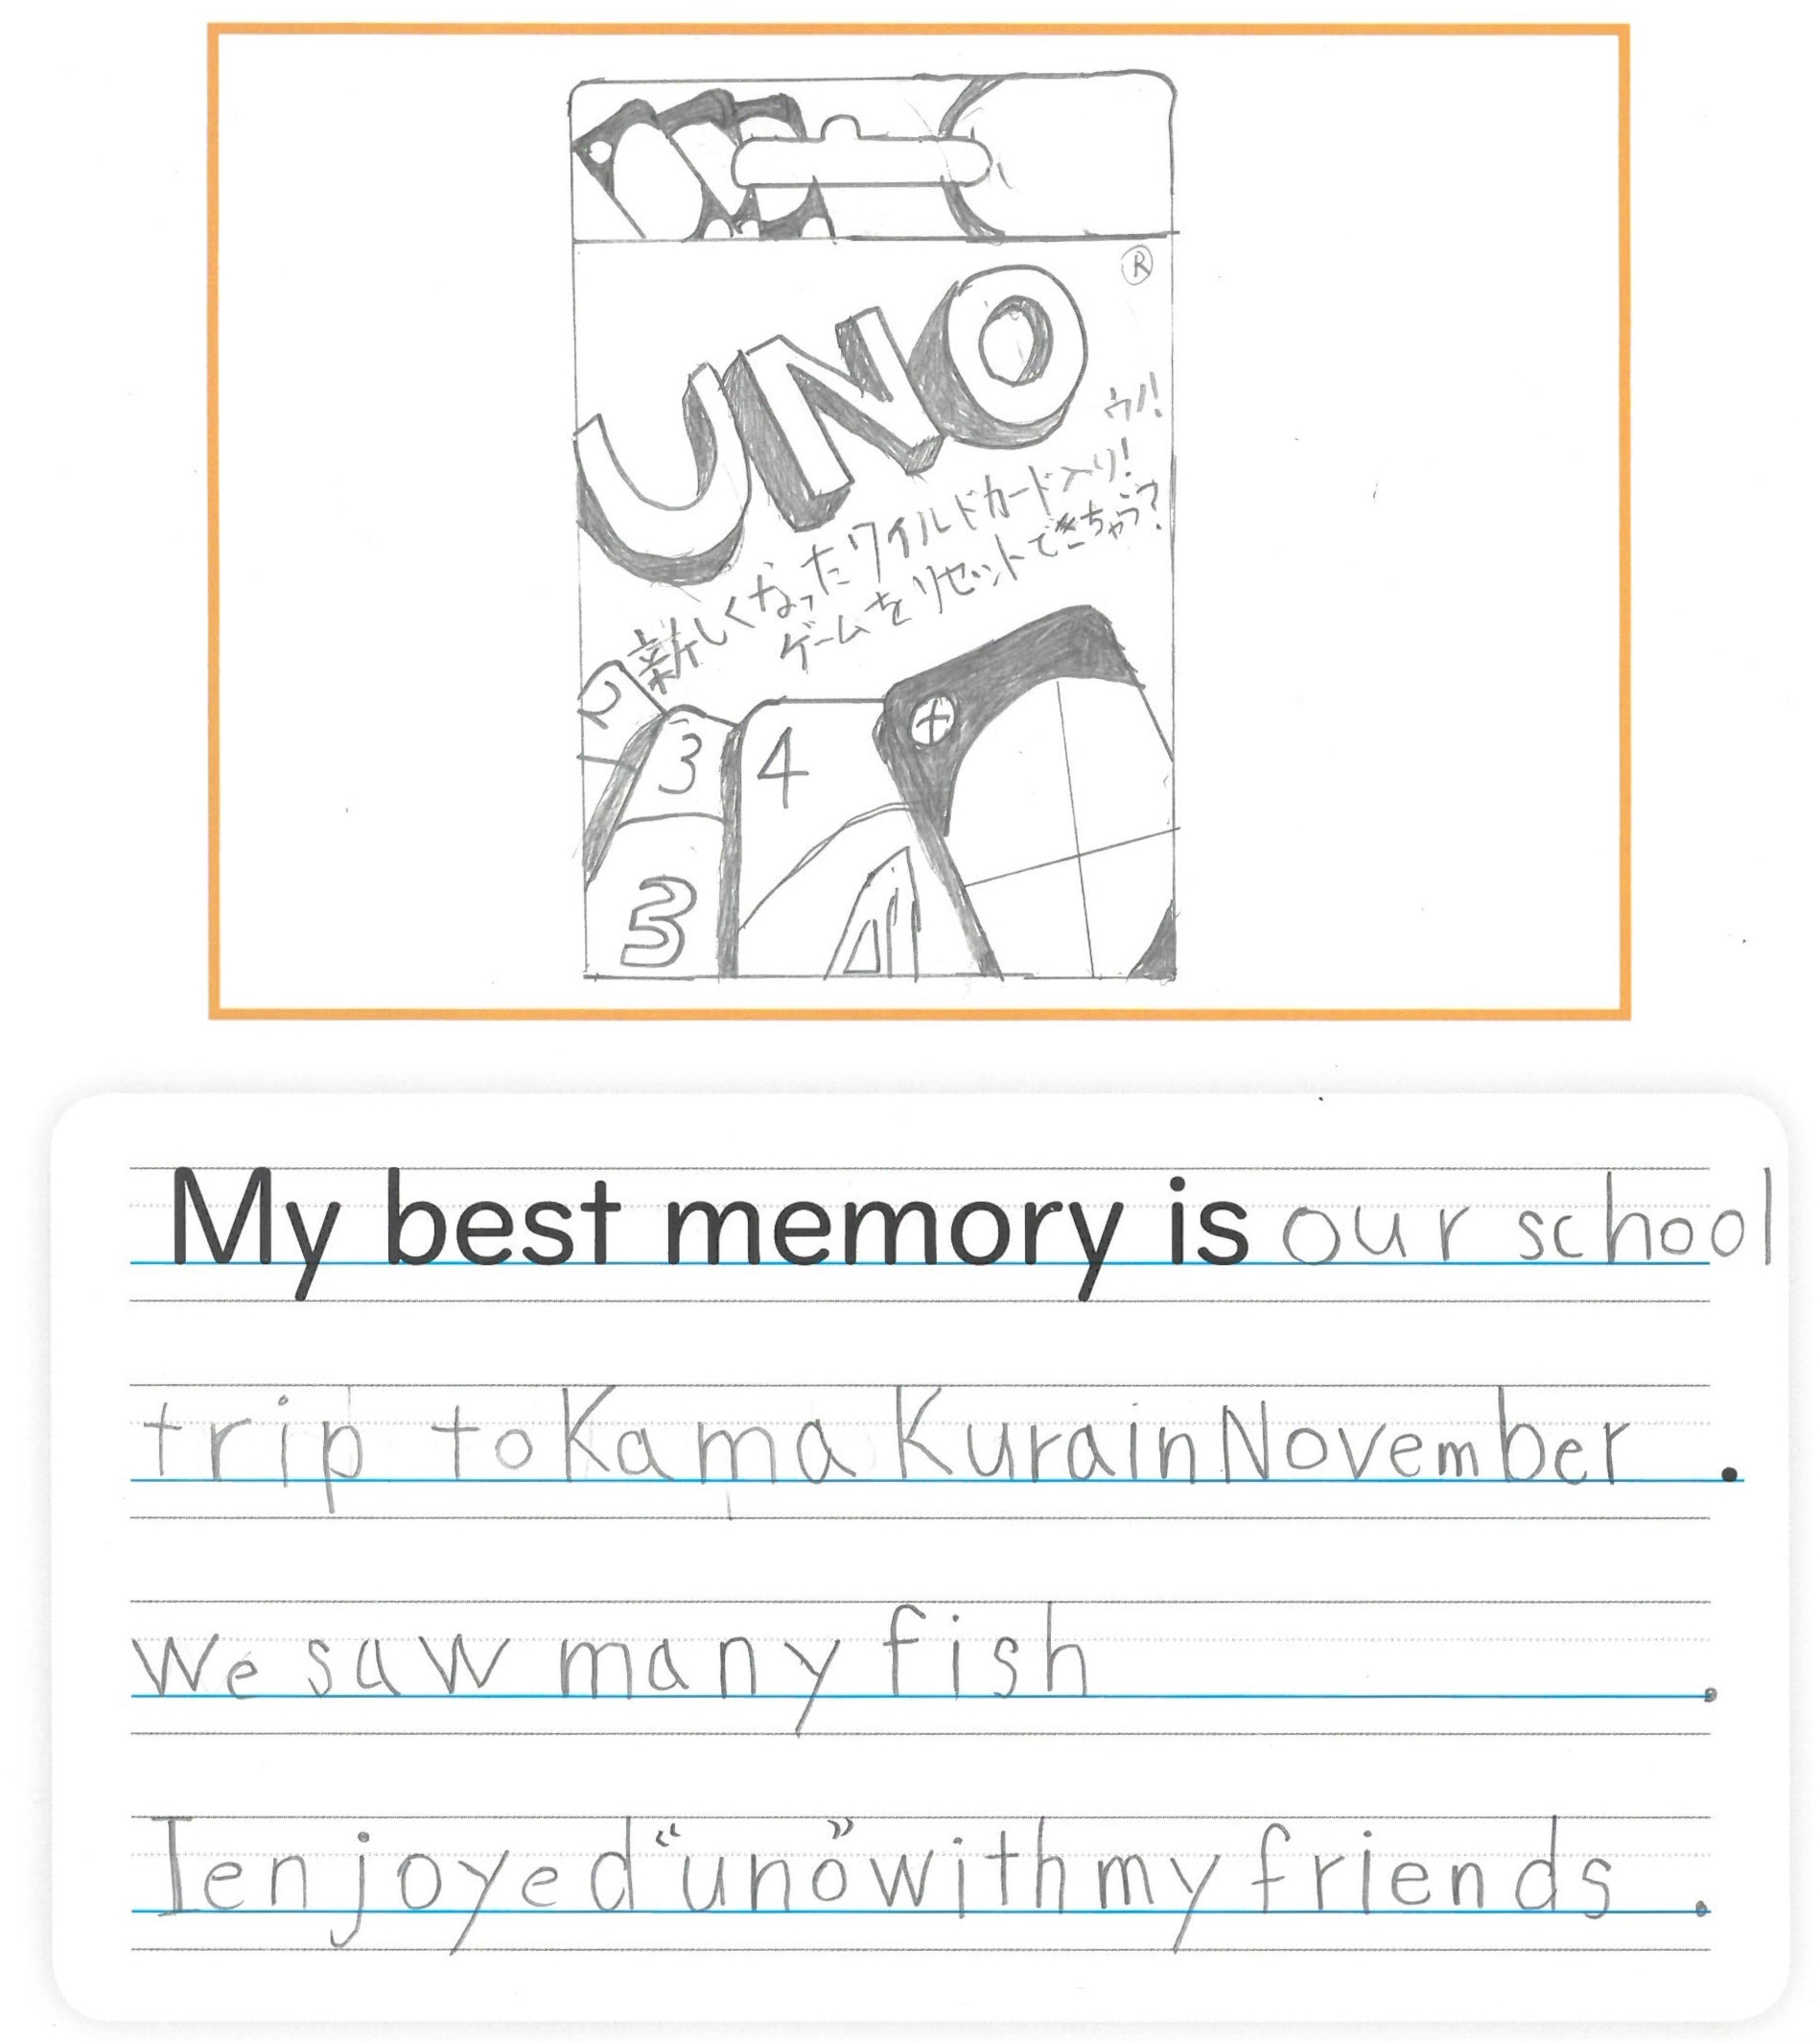 ®
UNO
ウノ!
新しくなったワイルドカード入り!
ゲームをリセットできちゃう?
2
3
4
+
3
4
My best memory is our school
trip to KamaKurainNovember.
we saw many fish.
Ienjoyed "uno"withmy friends.